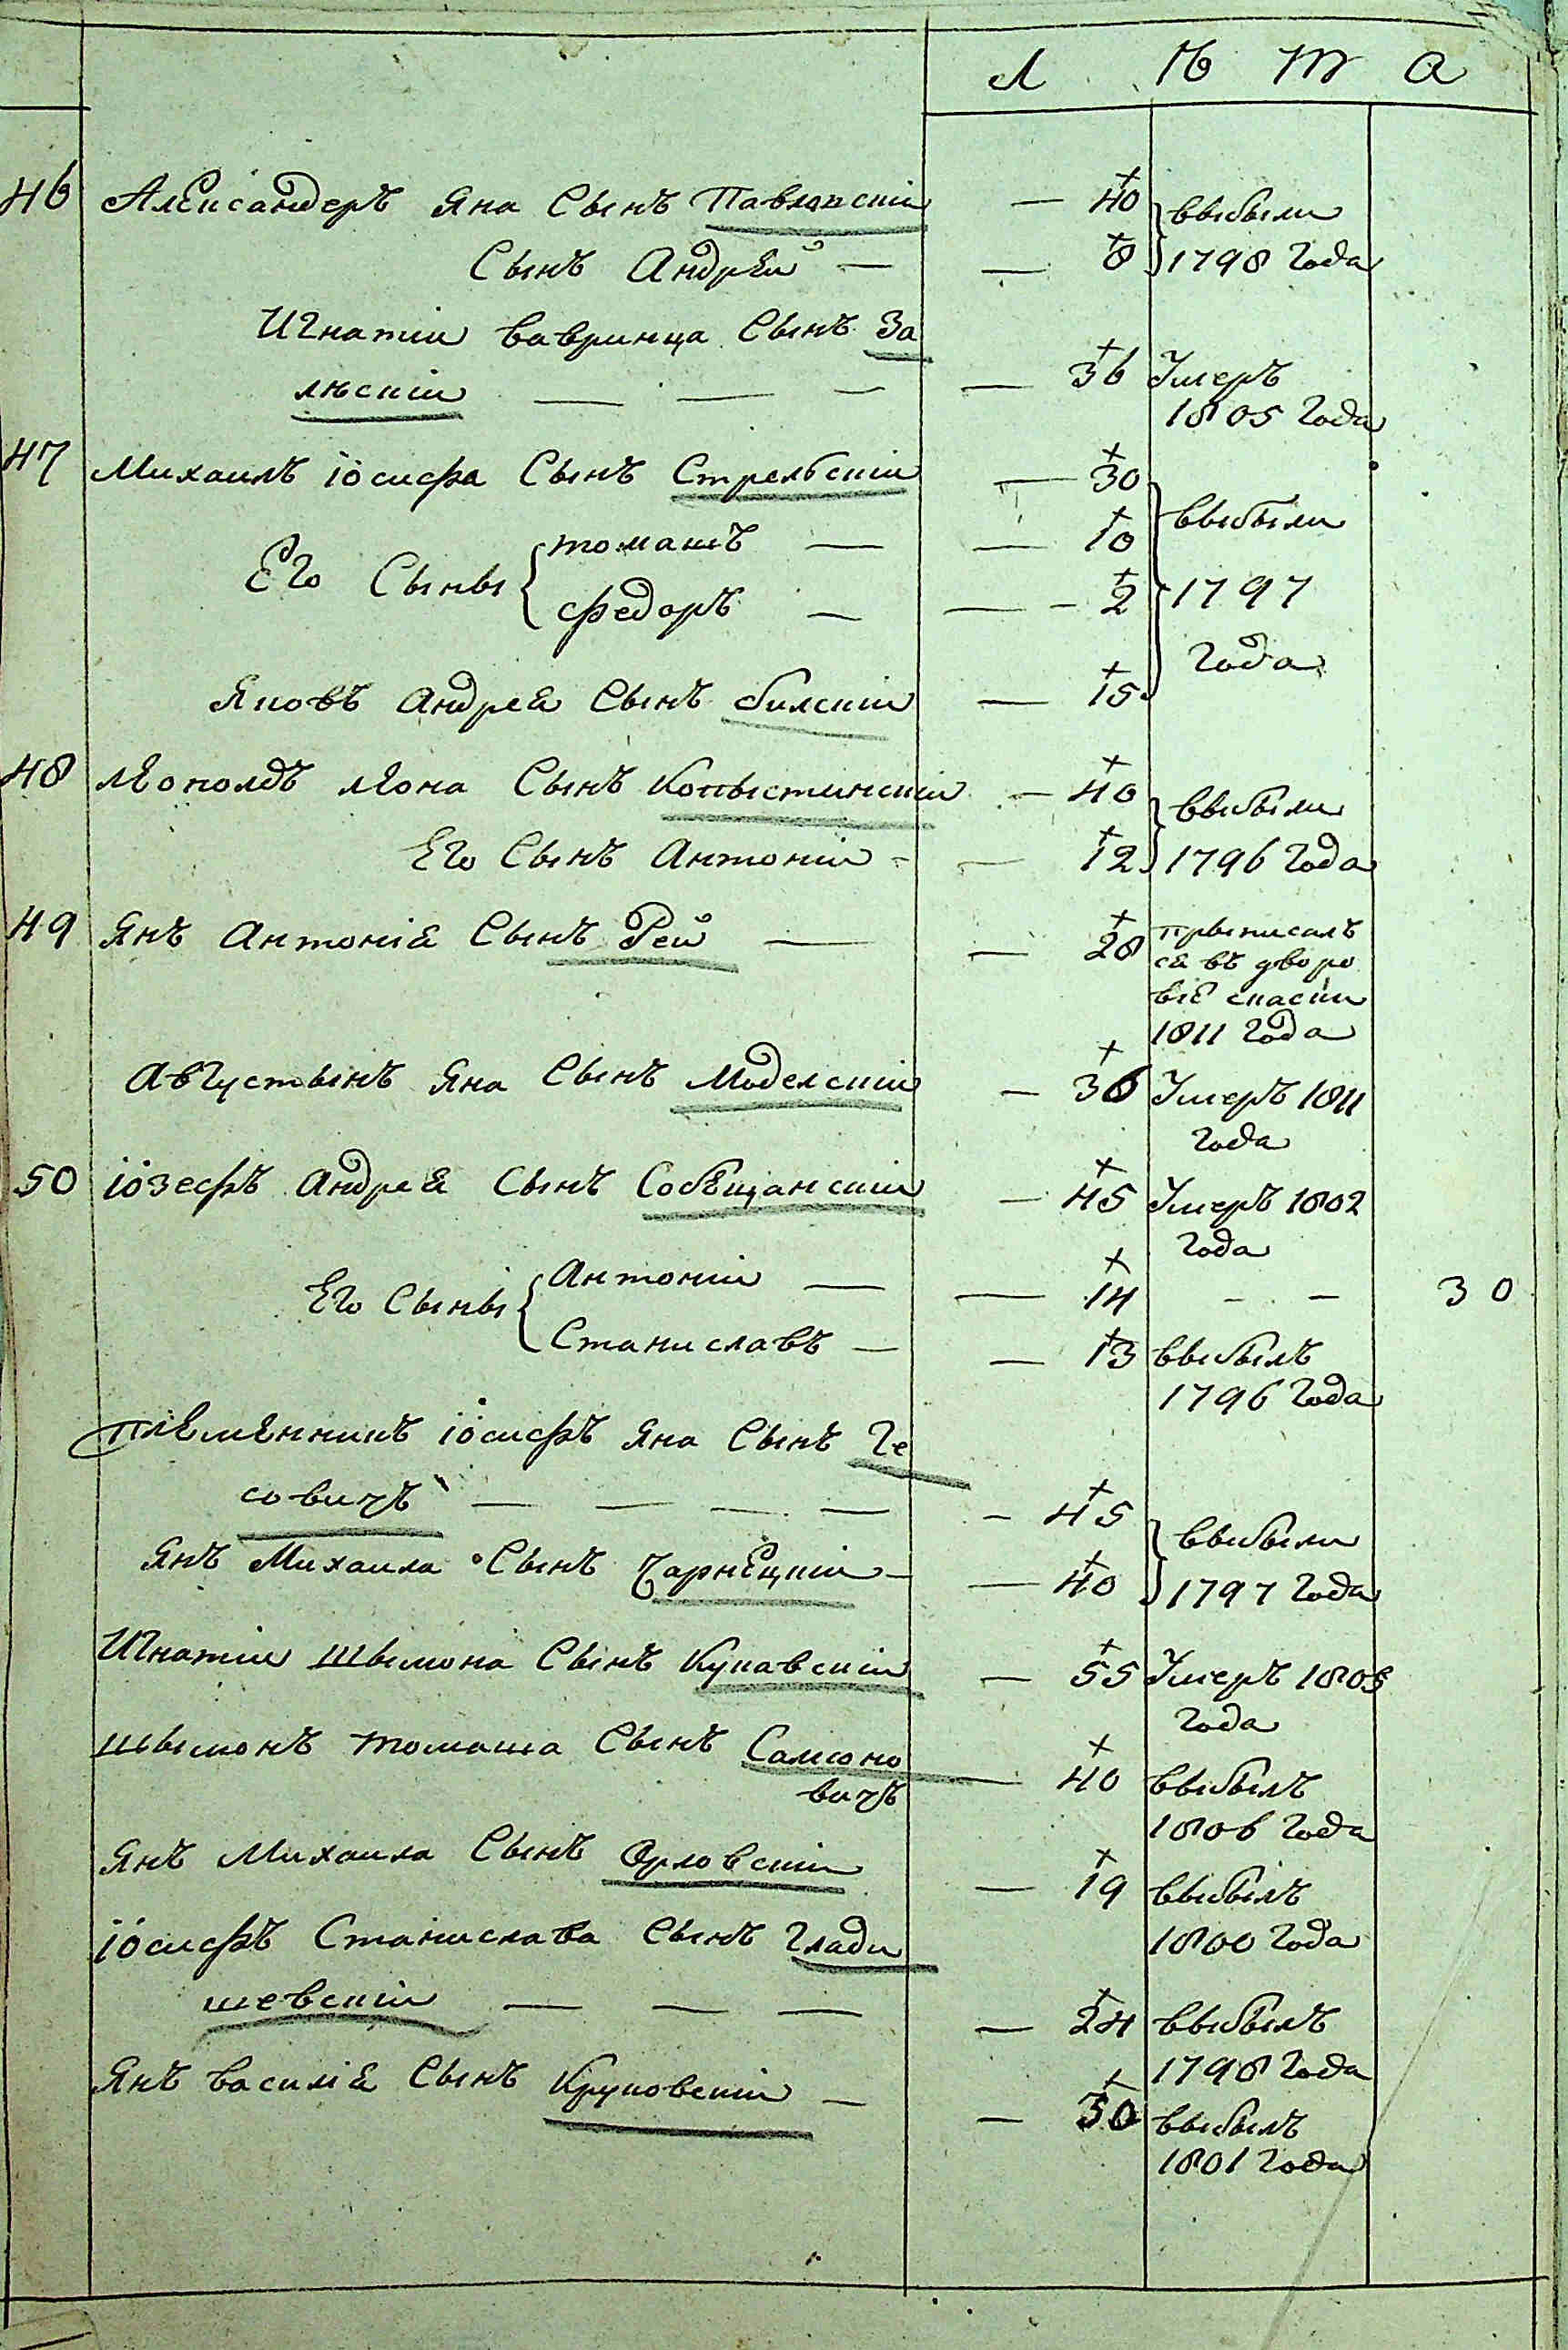 Л Ѣ Т А
46 Александеръ Яна Сынъ Павловскiи — 40 выбыли
Сынъ Андрей — — 8 1798 Года
Игнатiи Вавринца Сынъ За
лѣскiи — — — — 36 Умеръ
1805 Года
47 Михаилъ Iосифа Сынъ Стрельбскiи — 30
выбыли
Его Сыны томашъ — — 10
федоръ — — 2 1797
Года
Яковъ Андрея Сынъ билскiи — 15
48 Леополдъ Леона Сынъ Копыстинскiи — 40 выбыли
Его Сынъ Антонiи — 12 1796 Года
49 Янъ Антонiя Сынъ Рей — — 28 прыписалъ
ся въ дворо
вiе скаски
1811 Года
Августынъ Яна Сынъ Моделскiи — 36 Умеръ 1811
Года
50 Iозефъ Андрея Сынъ Собещанскiи — 45 Умеръ 1802
Года
Его Сыны Антонiи — — 14 — — 30
Станиславъ — — 13 выбылъ
1796 Года
племенникъ Iосифъ Яна Сынъ Ге
совичъ — — — — — 45 выбыли
Янъ Михаила Сынъ Чарнецкiи — — 40 1797 Года
Игнатiи Шымона Сынъ Купавскiи — 55 Умеръ
Года
шымонъ томаша Сынъ Самсоно
вичъ — 40 выбылъ
1806 Года
Янъ Михаила Сынъ Орловскiи — 19 выбылъ
1800 Года
Iосифъ Станислава Сынъ Глади
шевскiи — — — — 24 выбылъ
1798 Года
Янъ Василiя Сынъ Круковскiи — — 30 выбылъ
1801 Года